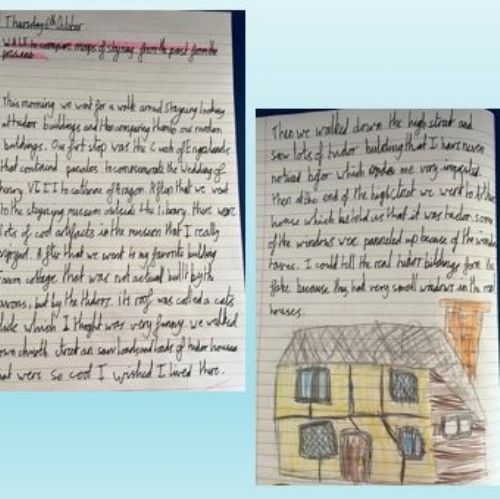 Thursday 6th October
WALT to compare maps of steyning from the past from the
present
This morning we went for a walk around Steyning looking
at tudor buildings and then comparing them to our modern
buildings. Our first stop was the Church of England
that contained panels to commemorate the Wedding of
henry VIII to catherine of Aragon. After that we went
to the steyning museum outside the library. there were
lots of cool artifacts in the museum that I really
enjoyed. After that we went to my favorite building
saxon cottage that was not actual built by the
saxons, but by the tudors. its roof was called a cats
slide which I thought was very funny. we walked
down church street an saw loads and loads of tudor houses
that were so cool I wished I lived there.
Then we walked down the high street and
saw lots of tudor building that I have never
noticed befor which made me very
then at the end of the high street we went to
house which he told us that it was tudor some
of the windows were panneled up because of the window
taxes. I could tell the real tudor buildings from the
fake because they had very small windows in the real
houses.